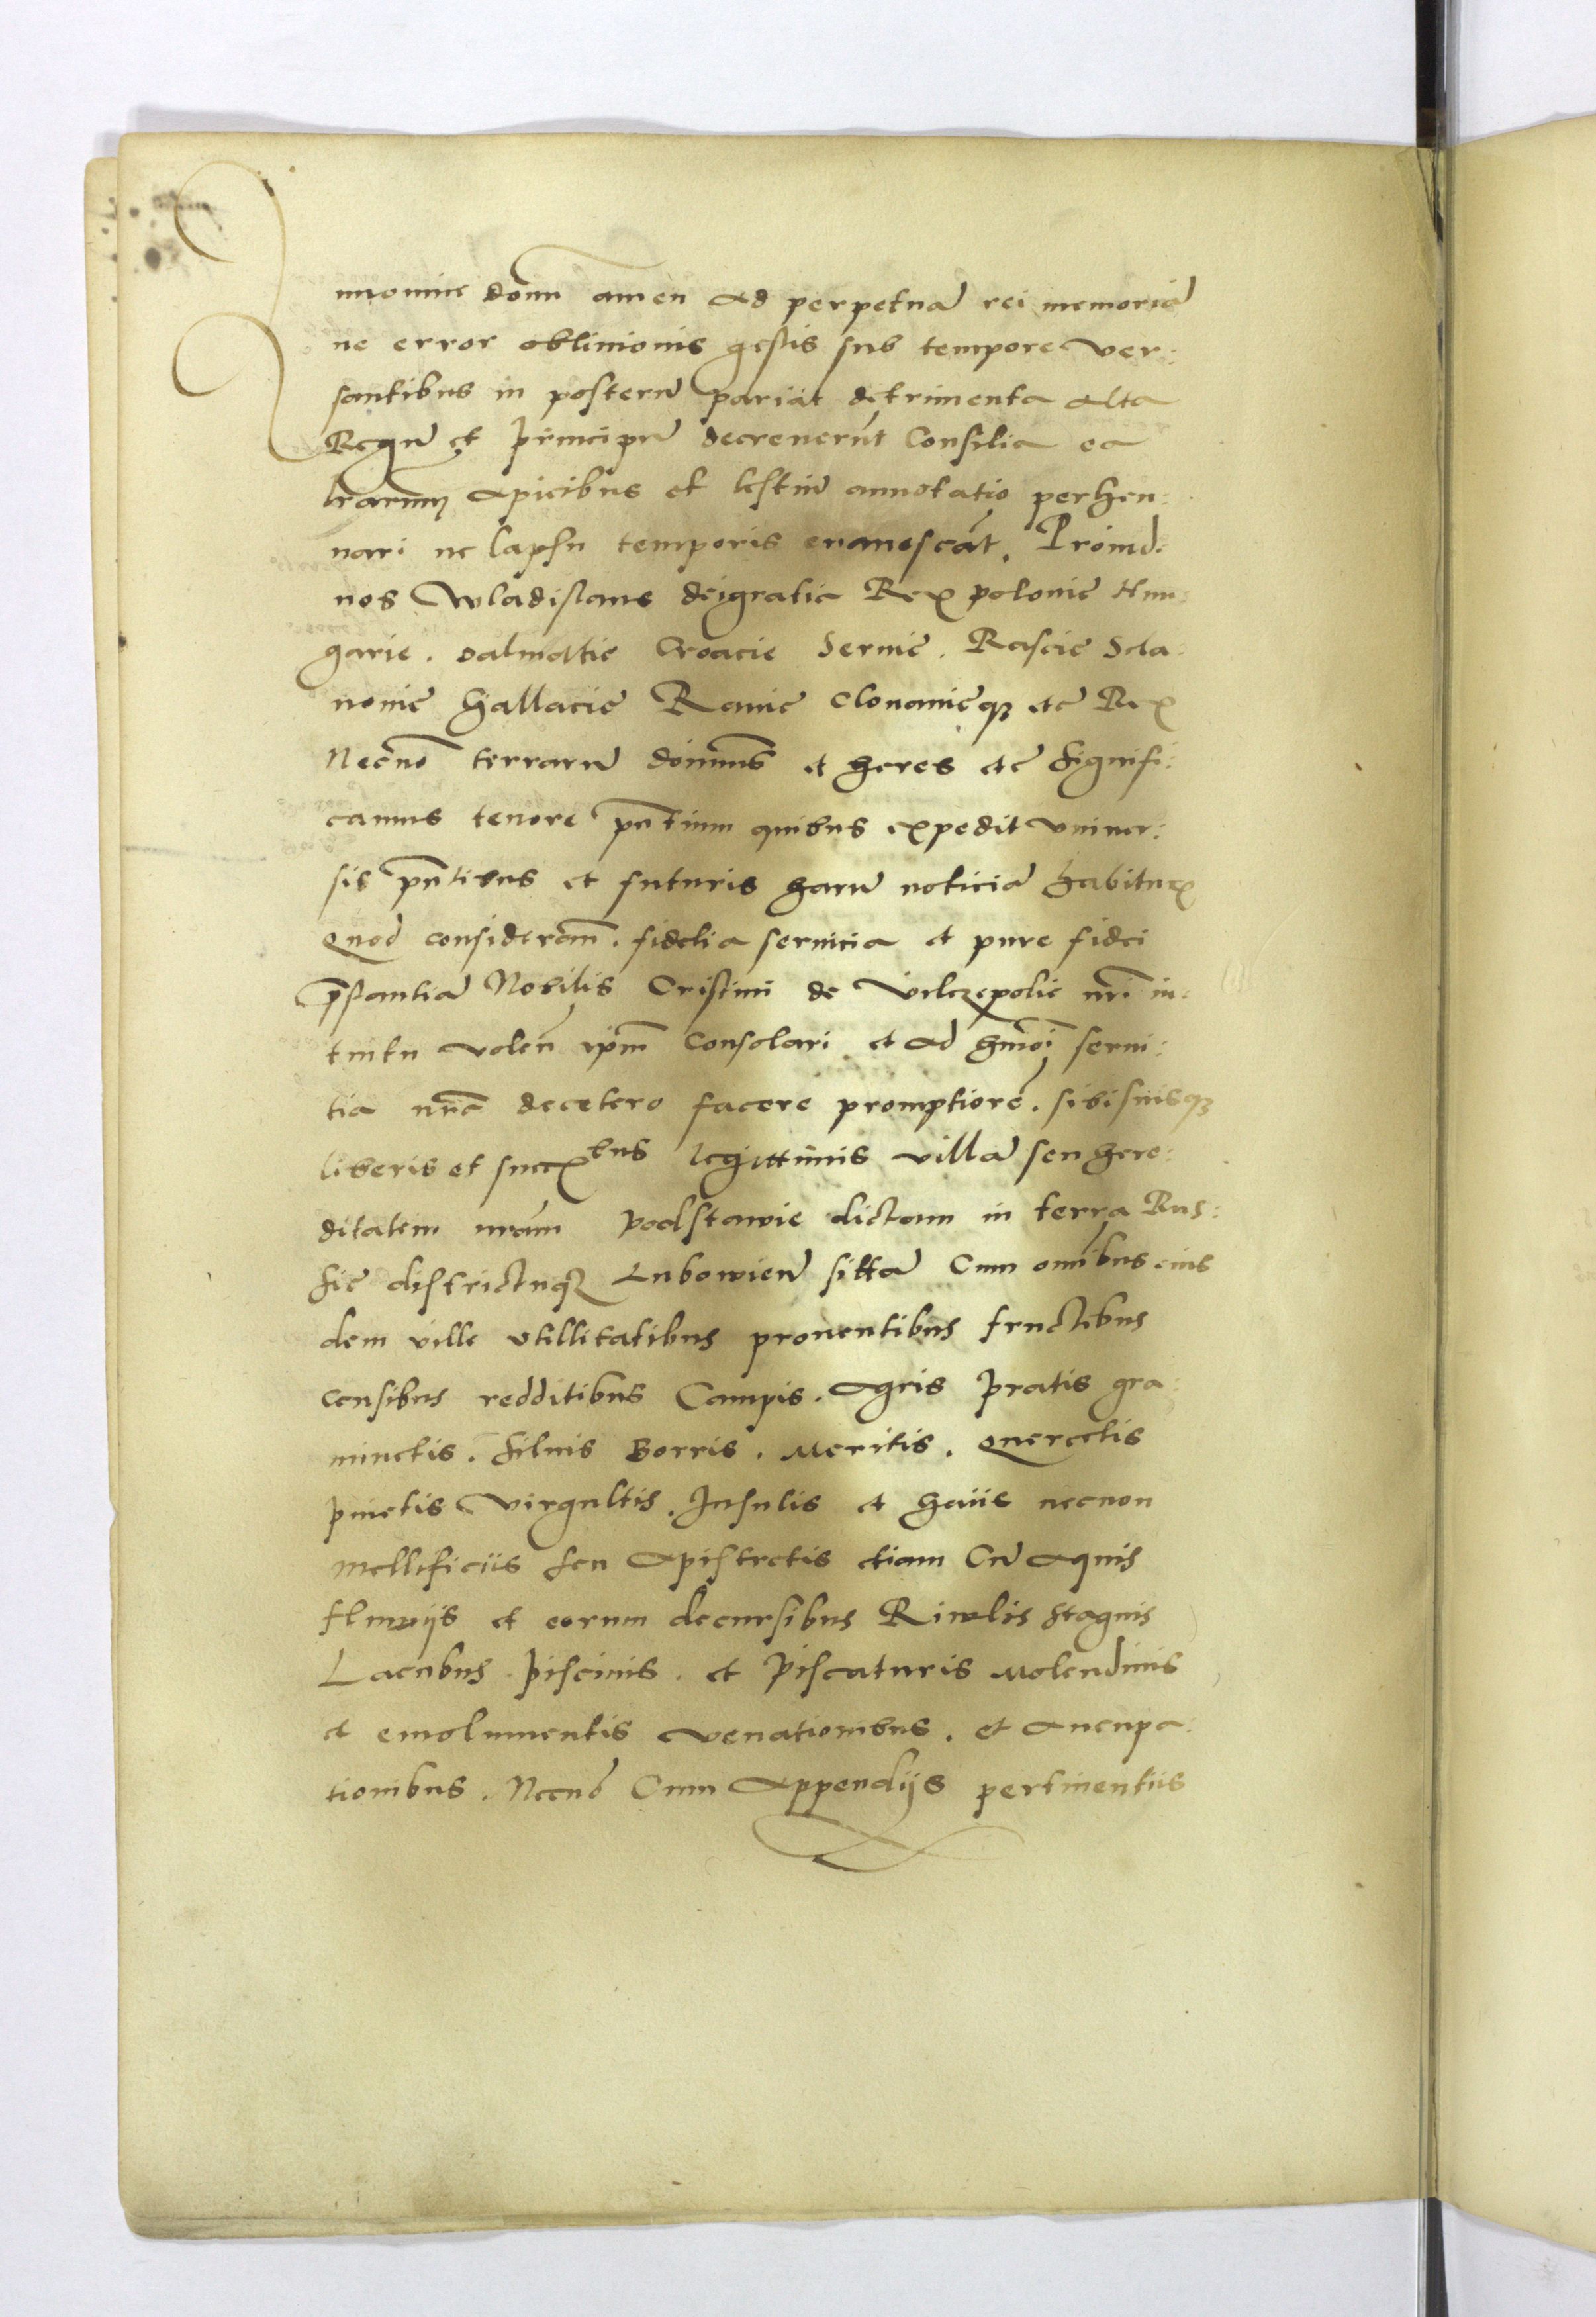 In nomine domi amen Ad perpetuam rei memoriam
ne error obliuionis gestis sub tempore ver:
santibus in posterum pariat detrimenta alta
Regum et Principum decreuerunt Consilia ea
lrarum apicibus et testium annotatio perhen:
nari ne lapsu temporis euanescat. Proinde
nos Wladislaus dei gratia Rex polonie Hun:
garie. Dalmattie Croacie Seruie. Rascie Scla:
uonie Hallacie Ramie Clouanieq; etc Rex
Necno terrarum dominus et heres etc signifi:
camus tenore pntium quibus expedit vniuer:
sis pntibus et futuris harum noticiam habitur
Quod consideran. fidelia seruicia et pure fidei
pstantiam Nobilis Cristini de Vilczepolie nri in:
tuitu volen ipm Consolari et ad hmoi serui:
tia nra decetero facere promptiorem. sibi suisq;
liberis et succ bus legittimis villam seu here:
ditatem nram Podstawie dictam in terra Rus:
sie districtuq; Lubowien sittam Cum omnibus eius
dem ville vtillitatibus prouentibus fructibus
censibus redditibus Campis. Agris Pratis gra:
minetis. siluis Borris. Meritis. Quercetis
pinetis Virgultis. Insulis et haiis necnon
Mellificiis seu Apistretis etiam Cum Aquis
fluuijs et eorum decursibus Riuulis stagnis
Lacubus. Piscinis. et Piscaturis Molendinis
et emolumentis venationibus. et Aucupa:
tionibus. Necno Cum Appendijs pertinentiis